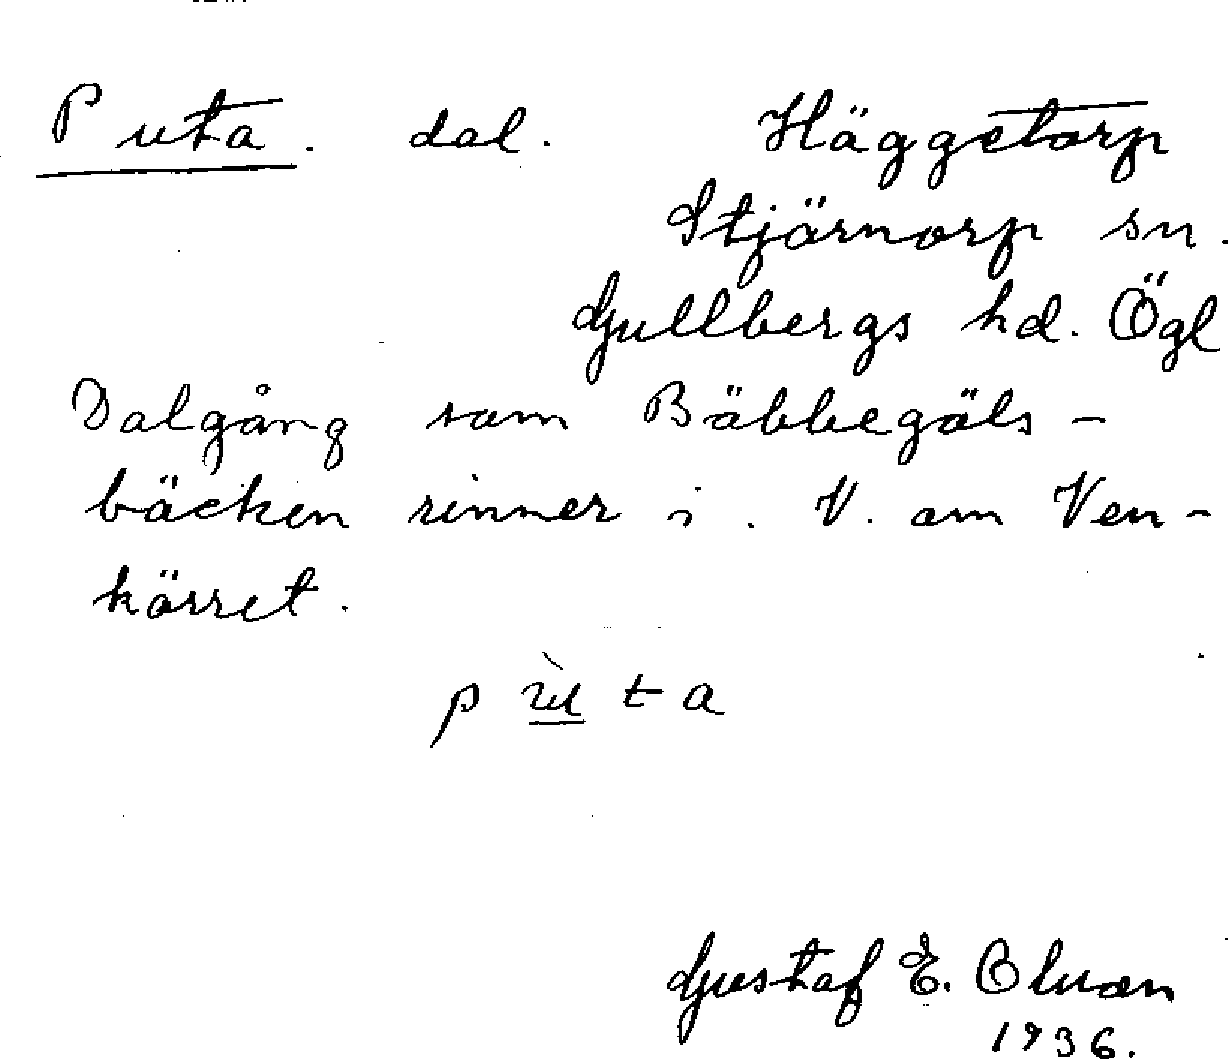 Puta. dal. Häggetorp
Stjärnorp sn.
Gullbergs hd. Ögl
Dalgång som Bäbbegäls-
bäcken rinner i. V. om Ven-
kärret.
p ù t a
Gustaf E. Olson
1936.